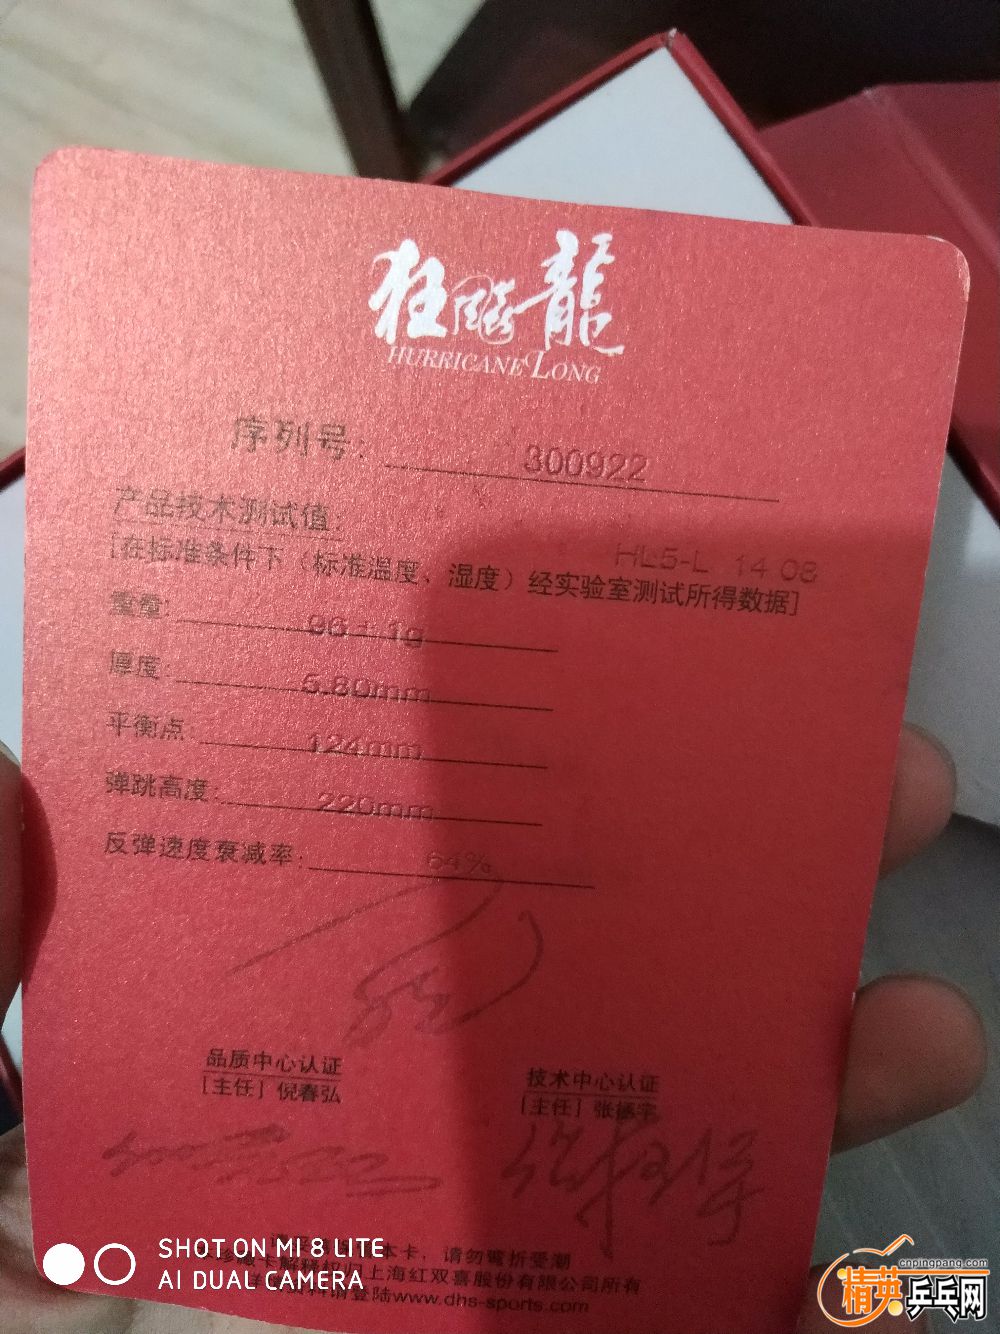 狂飚龍
HURRICANE LONG
序列号: 300922
产品技术测试值:
HL5-L 14 08
[在标准条件下（标准温度、湿度）经实验室测试所得数据]
重量: 96±1g
厚度: 5.80mm
平衡点: 124mm
弹跳高度: 220mm
反弹速度衰减率: 64%
品质中心认证
[主任] 倪春弘
技术中心认证
[主任] 张振宇
本卡，请勿弯折受潮
珍藏卡解释权归上海红双喜股份有限公司所有
请登陆www.dhs-sports.com
SHOT ON MI 8 LITE
AI DUAL CAMERA
cnpingpang.com
精英乒乓网